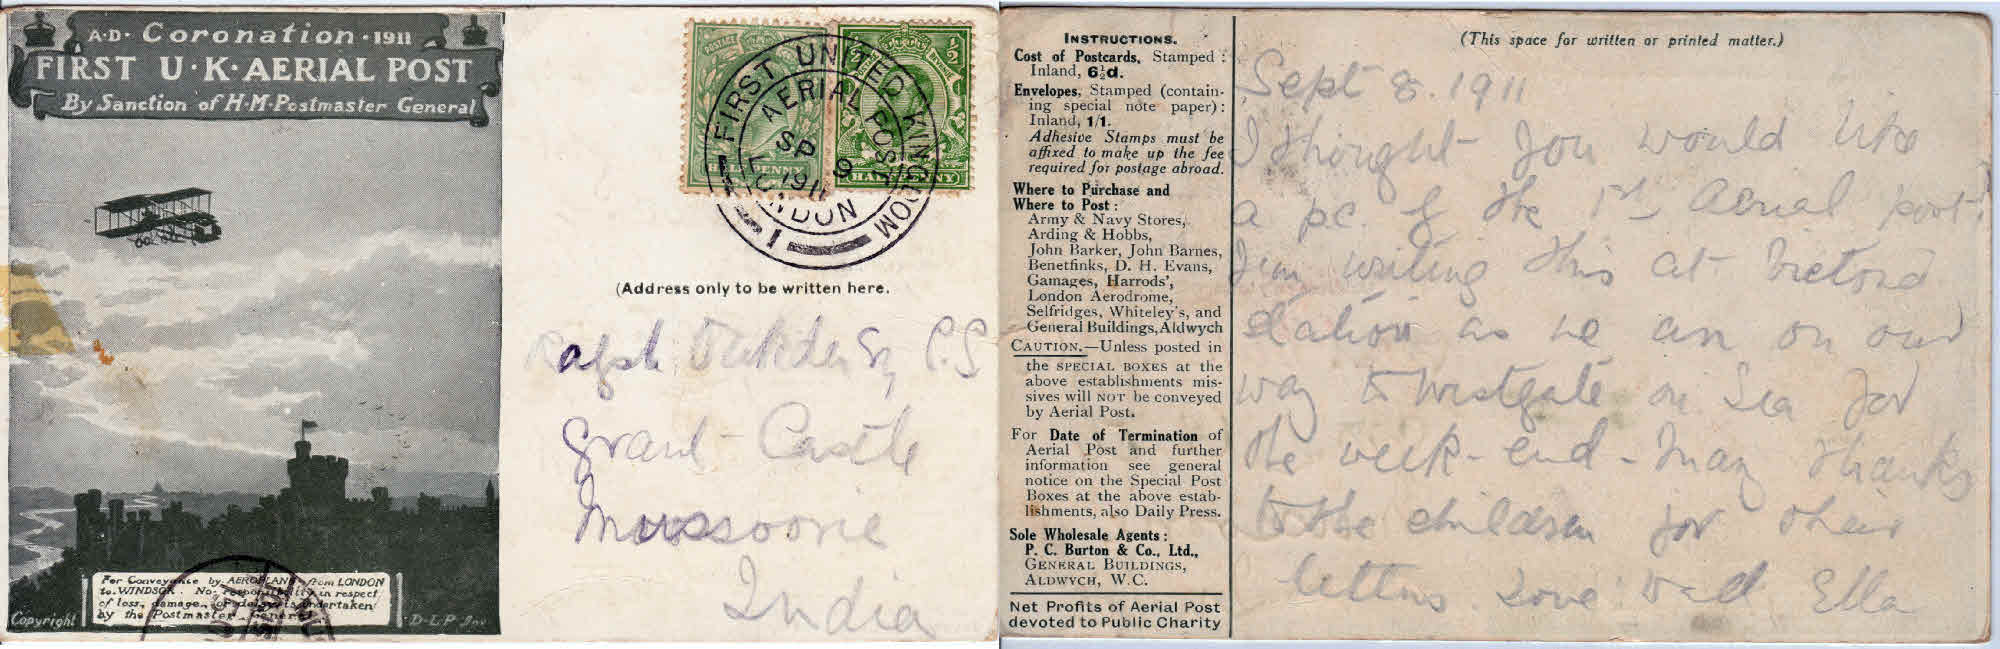 A·D· Coronation ·1911
FIRST U·K·AERIAL POST
By Sanction of H·M·Postmaster General
For Conveyance by AEROPLANE from LONDON
to WINDSOR. No responsibility in respect
of loss, damage, or delay is undertaken
by the Postmaster General
Copyright
D·L·P·Inv
HALFPENNY
HALFPENNY
FIRST UNITED KINGDOM
AERIAL POST
SP 9
1911
LONDON
1
(Address only to be written here.
Ralph Esq C.S
Grant Castle
Mussoorie
India
INSTRUCTIONS.
Cost of Postcards, Stamped :
Inland, 6½d.
Envelopes, Stamped (contain-
ing special note paper) :
Inland, 1/1.
Adhesive Stamps must be
affixed to make up the fee
required for postage abroad.
Where to Purchase and
Where to Post :
Army & Navy Stores,
Arding & Hobbs,
John Barker, John Barnes,
Benetfinks, D. H. Evans,
Gamages, Harrods',
London Aerodrome,
Selfridges, Whiteley's, and
General Buildings, Aldwych
CAUTION.—Unless posted in
the SPECIAL BOXES at the
above establishments mis-
sives will NOT be conveyed
by Aerial Post.
For Date of Termination of
Aerial Post and further
information see general
notice on the Special Post
Boxes at the above estab-
lishments, also Daily Press.
Sole Wholesale Agents :
P. C. Burton & Co., Ltd.,
GENERAL BUILDINGS,
ALDWYCH, W.C.
Net Profits of Aerial Post
devoted to Public Charity
(This space for written or printed matter.)
Sept 8. 1911
I thought you would like
a p.c. of the 1st Aerial post!
I'm writing this at Victoria
station as we are on our
way to Westgate on Sea for
the week-end - Many thanks
to the children for their
letters Love Ella